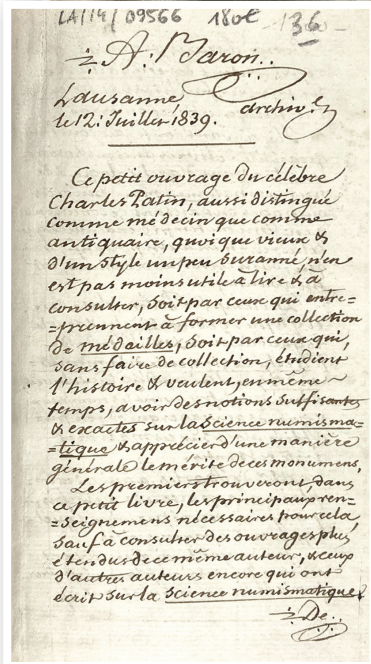 LA/14/09566 180€ -36-
A: Baron..
Lausanne, archiv.
le 12: Juillet 1839.
Ce petit ouvrage du célèbre
Charles Patin, aussi distingué
comme médecin que comme
antiquaire, quoique vieux &
d'un style un peu suranné, n'en
est pas moins utile à lire & à
consulter, soit par ceux qui entre=
=prennent à former une collection
de médailles, soit par ceux qui,
sans faire de collection, étudient
l'histoire & veulent, en même
temps, avoir des notions suffisantes
& exactes sur la science numisma=
=tique & apprécier d'une manière
générale le mérite de ces monumens.
Les premiers, trouveront, dans
ce petit livre, les principaux ren=
=seignemens nécessaires pour cela,
sauf à consulter des ouvrages plus
étendus de ce même auteur, & ceux
d'autres auteurs encore qui ont
écrit sur la science numismatique.
De